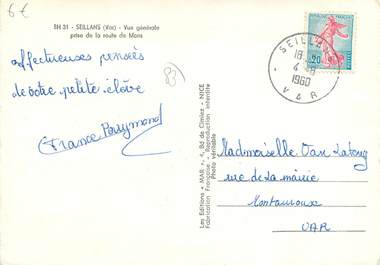 6€
EN 31 - SEILLANS (Var) - Vue générale
prise de la route de Mons
affectueuses pensées
de votre petite élève
France Raymond
83
Les Editions "MAR", 4, Bd de Cimiez - NICE
Fabrication Française - Reproduction interdite
Photo véritable
SEILLANS
18
4 - 8
1960
VAR
0,20
Mademoiselle Van
rue de la mairie
Montauroux
VAR